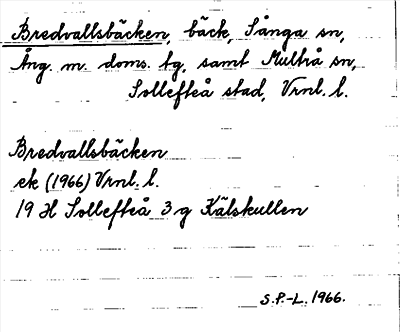 Bredvallsbäcken, bäck, Sånga sn,
Ång. m. doms. tg, samt Multrå sn,
Sollefteå stad, Vrnl. l.
Bredvallsbäcken
ek (1966) Vrnl. l.
19 H Sollefteå 3 g Kälskullen
S.P.-L. 1966.